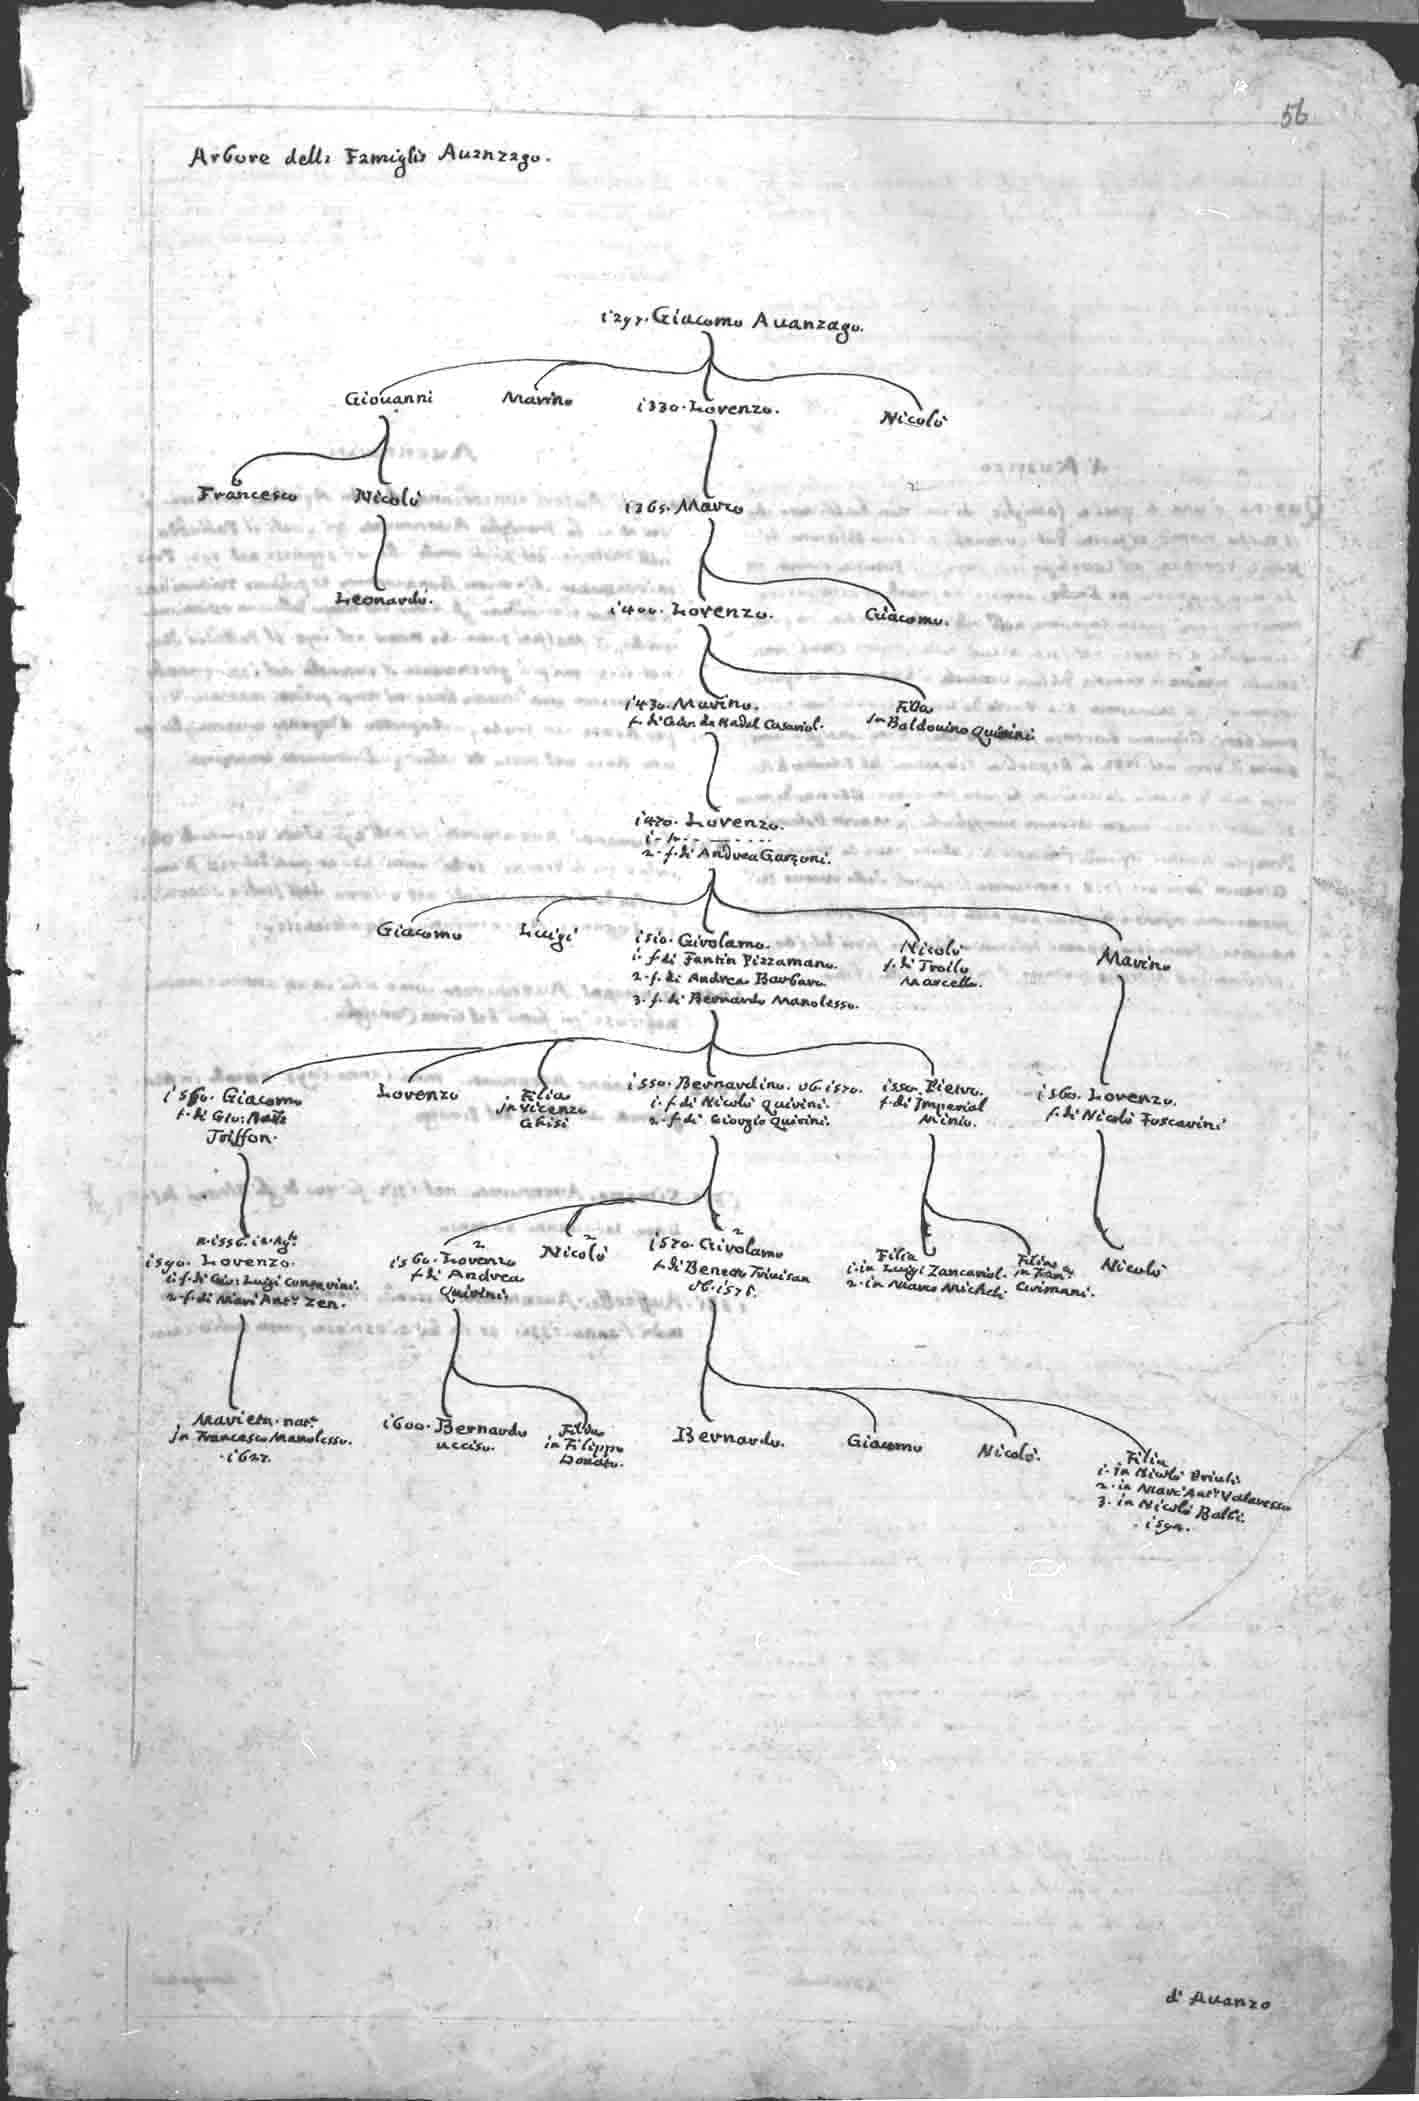 56
Arbore della Famiglia Auanzago.
1297. Giacomo Auanzago.
Giouanni
Marino
1330. Lorenzo.
Nicolò
Francesco
Nicolò
1365. Marco
Leonardo.
1400. Lorenzo.
Giacomo.
1430. Marino.
f. di Gio. da Madal Casariol.
Filia
in Baldouino Quirini
1470. Lorenzo.
1. f.
2. f. di Andrea Garzoni.
Giacomo
Luigi
1510. Girolamo.
1. f. di Fantin Pizzamano.
2. f. di Andrea Barbaro.
3. f. di Bernardo Manolesso.
Nicolò
f. di Troilo
Marcello.
Marino
1560. Giacomo
f. di Gio: Batta
Triffon.
Lorenzo
Filia
in Vicenzo
Ghisi
1550. Bernardino. ob. 1570.
1. f. di Nicolò Quirini.
2. f. di Giorgio Quirini.
1550. Pietro.
f. di Imperial
Minio.
1560. Lorenzo.
f. di Nicolò Foscarini
n. 1556. 12. Agto.
1590. Lorenzo.
1. f. di Gio: Luigi Contarini.
2. f. di Marc'Ant.o Zen.
2
1560. Lorenzo
f. di Andrea
Quirini.
2
Nicolò
2
1570. Girolamo
f. di Beneto Triuisan
ob. 1575.
Filia
1. in Luigi Zancariol.
2. in Marco Micheli
Filia
in Fran.co
Grimani.
Nicolò
Marieta. nat.
in Francesco Manolesso.
1627.
1600. Bernardo
ucciso.
Filia
in Filippo
Donato.
Bernardo.
Giacomo
Nicolò.
Filia
1. in Nicolò Priuli.
2. in Marc'Ant.o Valaresso
3. in Nicolò Balbi.
d'Auanzo